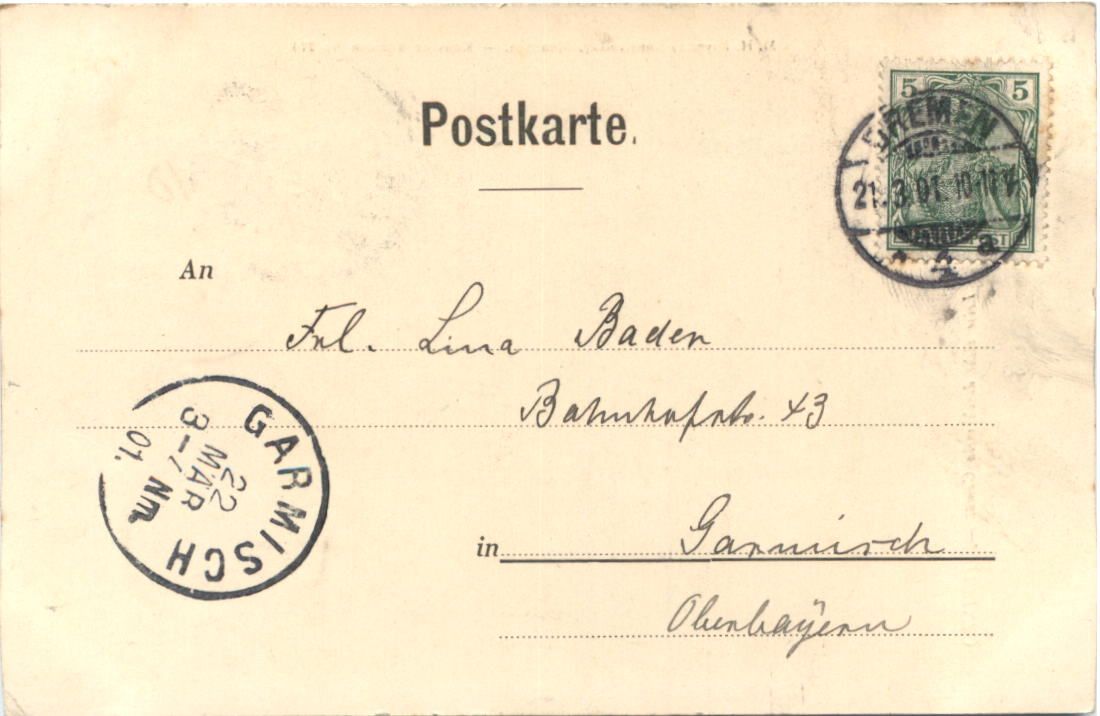 Postkarte.
5 5
BREMEN
21.3.01. 10-11 V.
* 4 a
An
Frl. Lina Baden
Bahnhofstr. 43
in Garmisch
Oberbayern
GARMISCH
22 MÄR
3-7 Nm.
01.